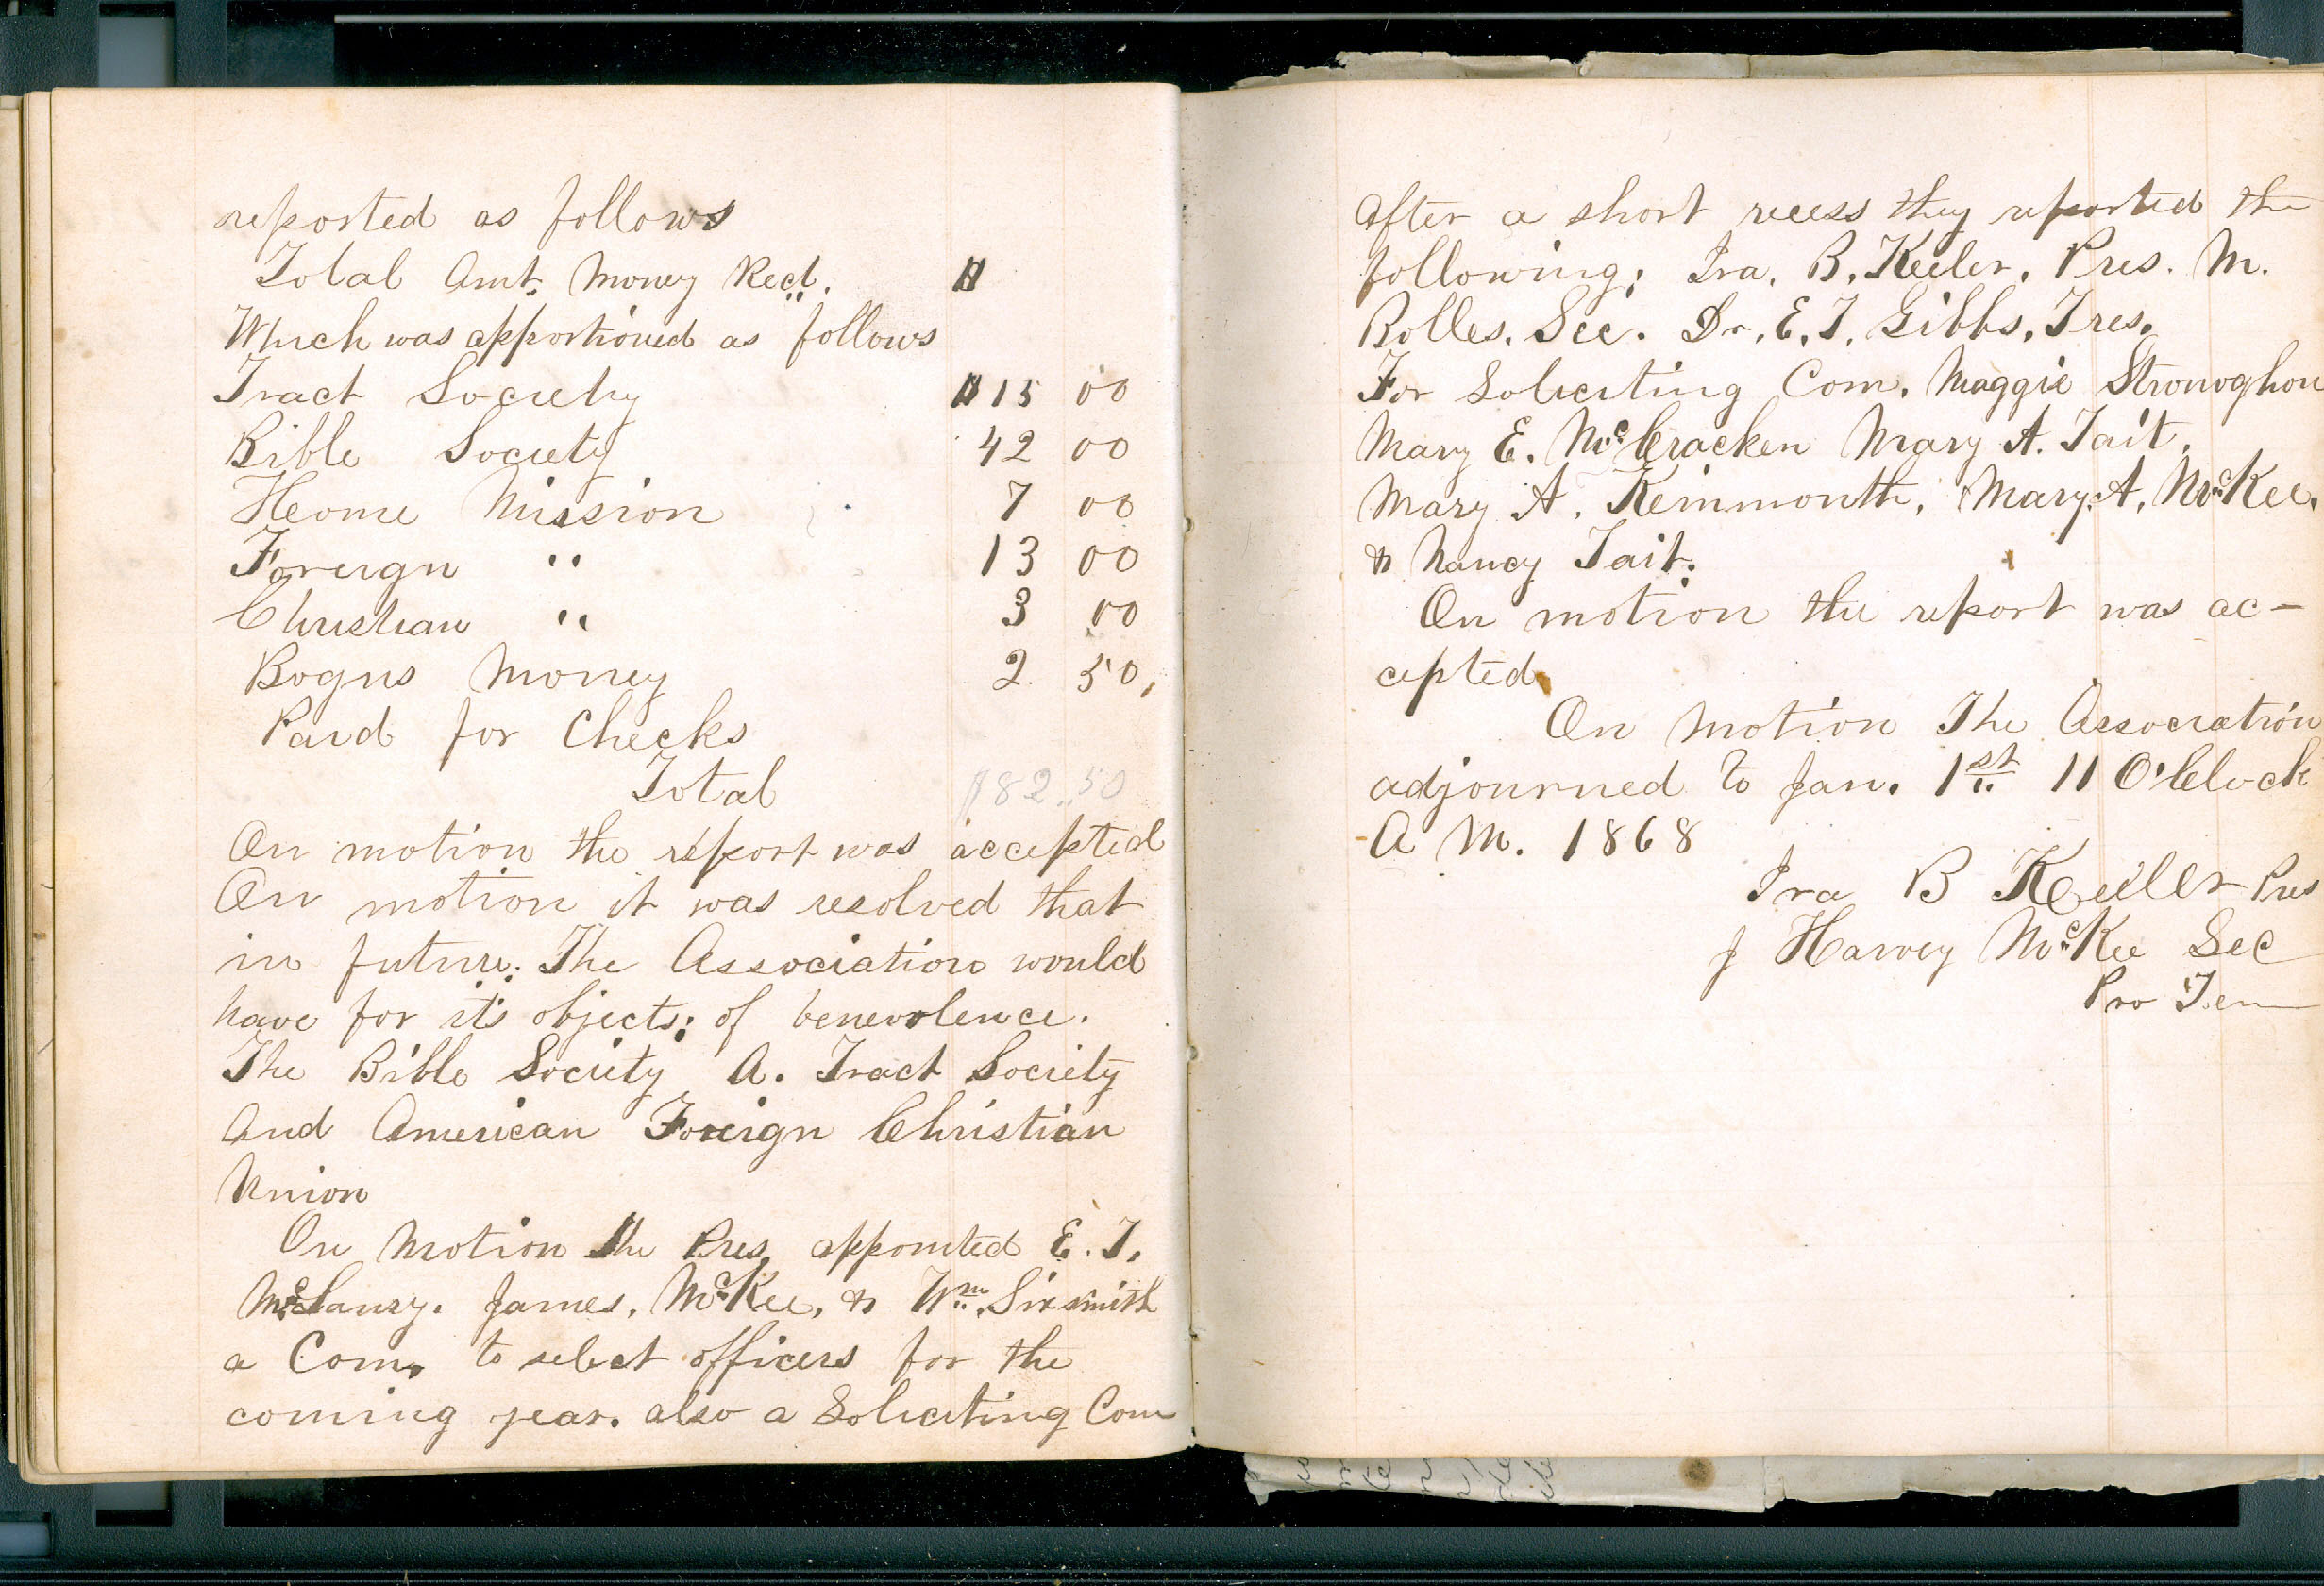 reported as follows
Total Amt. Money Recd. $
Which was apportioned as follows
Tract Society $15 00
Bible Society 42 00
Heome Mission 7 00
Foreign " 13 00
Christian " 3 00
Bogus Money 2. 50,
Paid for Checks
Total $82.50
On motion the report was accepted
On motion it was resolved that
in future. The Association would
have for its objects; of benevolence.
The Bible Society A. Tract Society
And American Foreign Christian
Union
On Motion The Pres. appointed E. T.
James. McKee, & Wm. Sixsmith
a Com. to select officers for the
coming year. also a Soliciting Com
After a short recess they reported the
following; Ira. B. Keeler. Pres. M.
Bolles. Sec. Dr. E. T. Gibbs. Tres.
For Soliciting Com. Maggie
Mary E. McCracken Mary A. Tait.
Mary A. Kinmonth, Mary. A. McKee.
& Nancy Tait.
On motion the report was ac-
cepted
On Motion The Association
adjourned to Jan. 1st 11 O'Clock
A M. 1868
Ira B Keeler Pres
J Harvey McKee Sec
Pro Tem